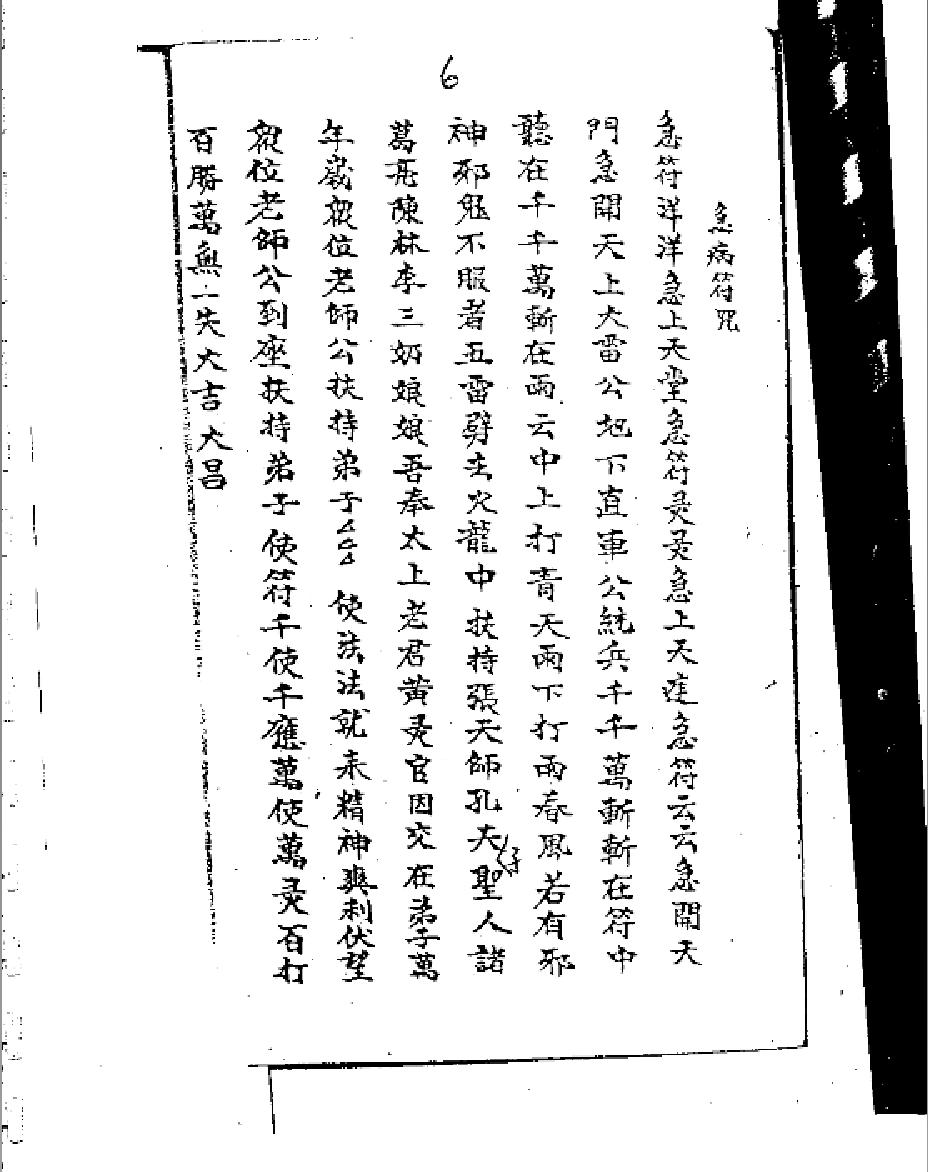 6
急病符咒
急符洋洋急上天堂急符灵灵急上天庭急符云云急開天
門急開天上大雷公地下直軍公統兵千千萬斬斬在符中
聽在千千萬斬在雨云中上打青天雨下打雨春風若有邪
神邪鬼不服者五雷劈主火龍中扶持張天師孔夫子聖人諸
葛亮陳林李三奶娘娘吾奉太上老君黄灵官因交在弟子萬
年歲眾位老師公扶持弟子△△△使法法就来精神爽利伏望
眾位老師公到座扶持弟子使符千使千應萬使萬灵百打
百勝萬無一失大吉大昌